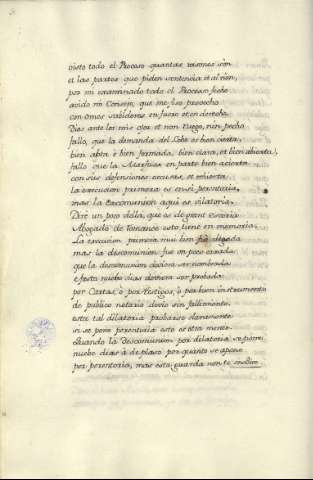 visto todo el Proceso quantas rasones son
et las partes que piden sentencia et al non,
por mi examinado todo el Proceso fecho
avido mi Consejo, que me fiso provecho
con omes sabidores en fuero et en derecho
Dios ante los mis ojos et non ruego, nin pecho
fallo, que la demanda del Lobo es bien cierta,
bien apta è bien formada, bien clara, et bien abierta,
fallo que la Marfusa en parte bien acierta
con sus defensiones escusa, et
la execucion primera es en si perentoria,
mas la Excomunion aqui es dilatoria
Diré un poco della, que es de grant estoria
Abogado de romance esto tiene en memoria.
La esencion primera muy bien fue llegada
mas la descomunion fue un poco errada
que la descomunion deviera ser nombrada
è fasta nueve dias deviera ser probada
por Cartas, ò por testigos, ò por buen instrumento
de publico notario devio sin fallimiento
esta tal dilatoria probarse claramente
si se pone perentoria esto es otra mente
Quando la Descomunion por dilatoria se pone
nuebe dias à de plaso por quanto se opone
por perentoria, mas esta guarda non te